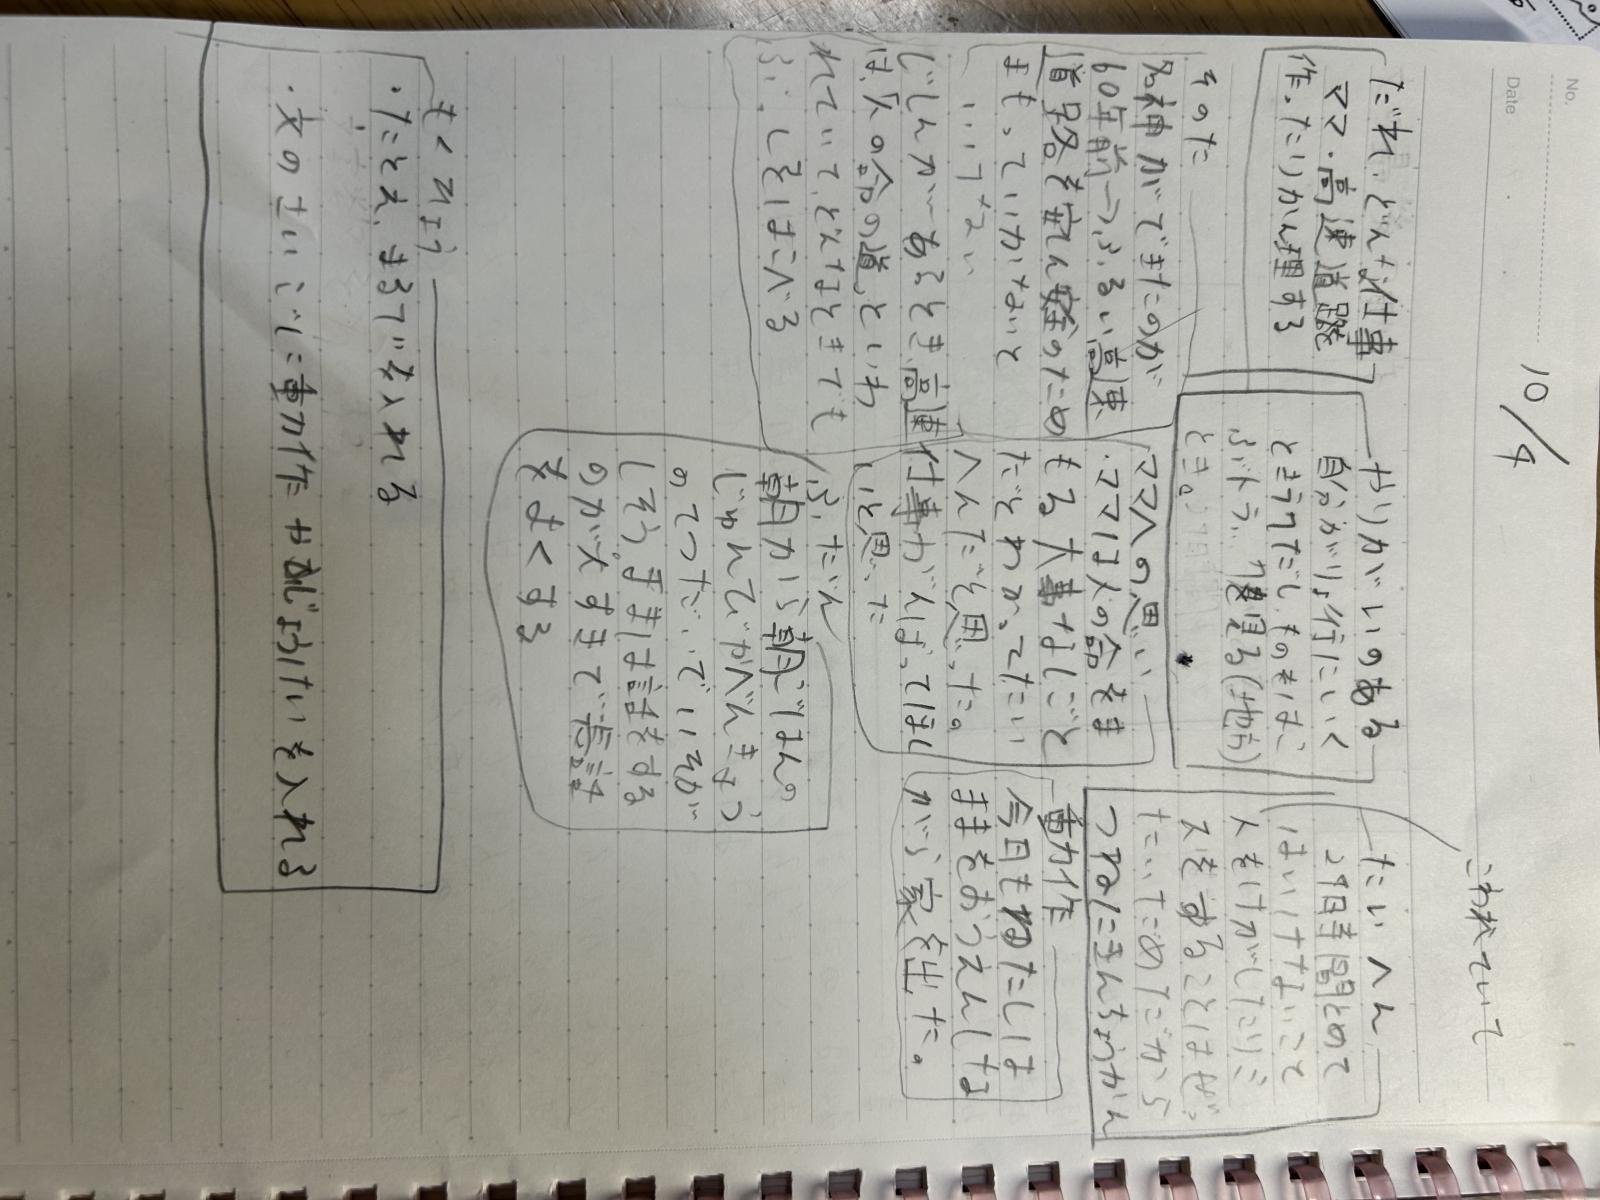 No.
Date
10/4
だれ、どんな仕事
ママ・高速道路
作ったりかん理する
やりがいのある
自分がりょ行にいく
とき
ぶ、トラブ
とき。
たいへん
24時間とめて
はいけないこと
人をけがしたりミ
スをすることはぜっ
たいだめだから
つねにきんちょうかん
こわれていて
そのた
名神ができたのが
60年前つぶるい高速
道路を安ん安のため
まもっていかないと
いいけない
じしんがーあるとき、高速
は、人の命の道、といわ
れていて、どんなときでも
ぶっしをはこべる
ママへの思い
・ママは人の命をま
もる大事なしごと
だとわかってたい
へんだと思った。
仕事がんばってほし
いと思った
動作
今日もわたしは
ままをおうえんしな
がら家を出た。
ふだん
朝から朝ごはんの
じゅんびかべんきょう
のてつだいでいそが
しそう。ままは話をする
のが大すきで長話
をよくする
もくひょう
・たとえ、まるでを入れる
・文のさいごに動作やおじょうけいを入れる